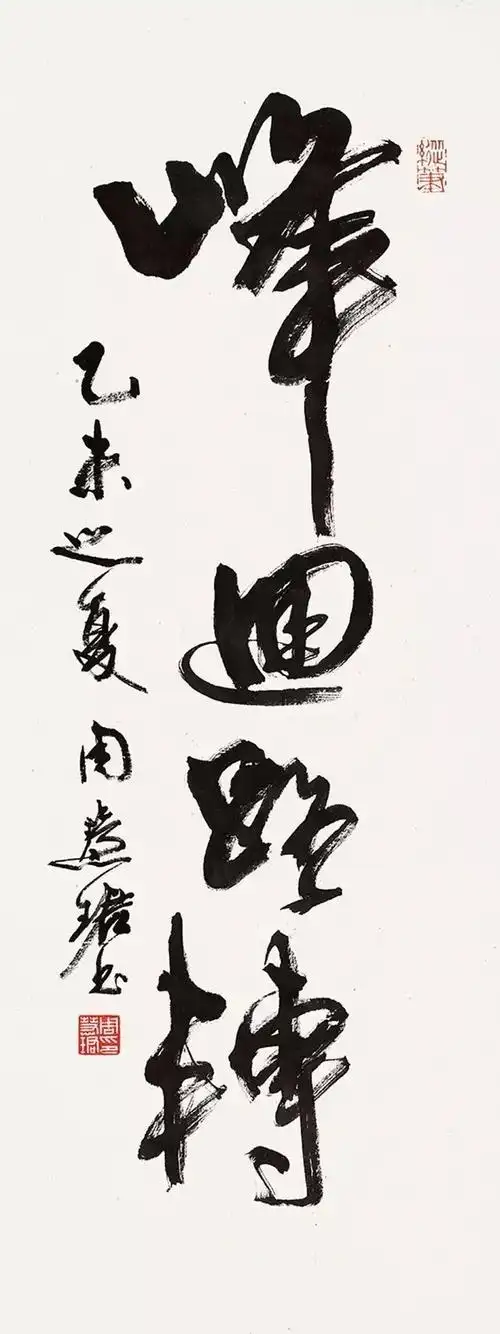 峰迴路轉
乙未之夏 周慧珺书
周印慧珺